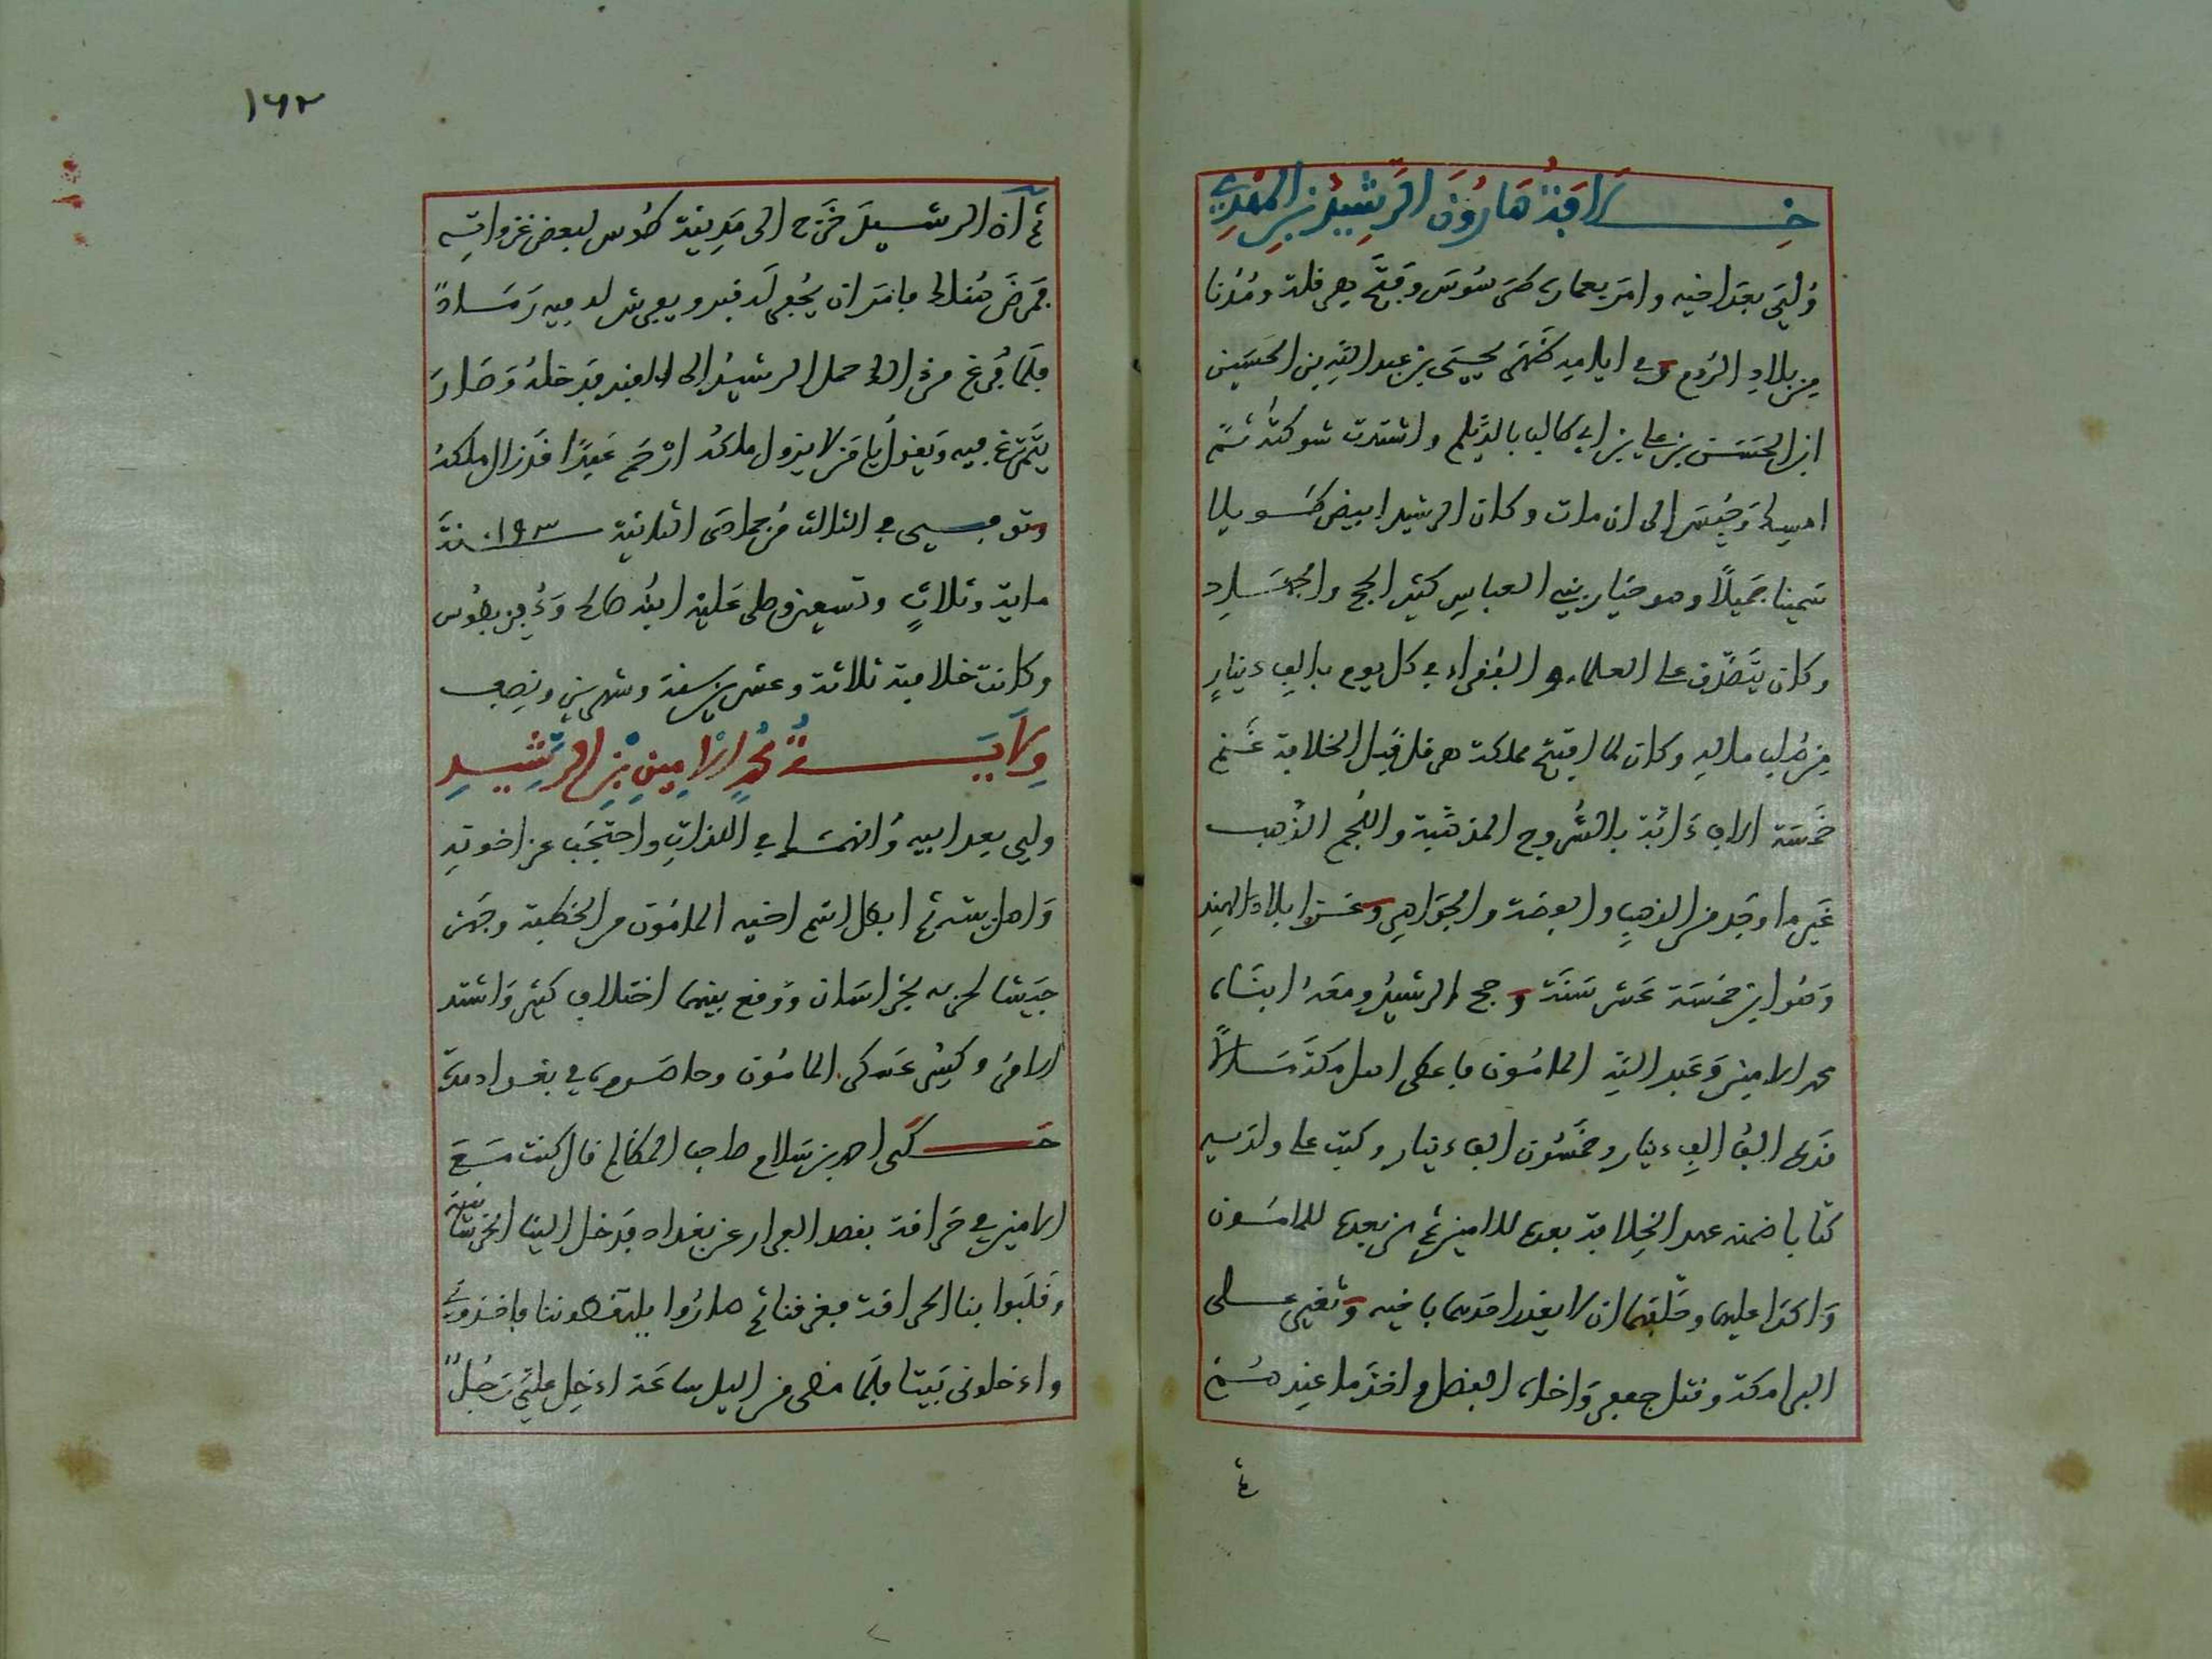 خلافة هارون الرشيد بن المهدي
ولي بعد اخيه وامر بعمارة طرسوس وفتح هرقلة ومدنا
من بلاد الروم وفي ايامه ظهر يحيى بن عبد الله بن الحسين
ابن الحسن بن علي بن ابي طالب بالديلم واشتدت شوكته ثم
امسك وحبس الى ان مات وكان الرشيد ابيض طويلا
سمينا جميلا وهو خيار بني العباس كثير الحج والجهاد
وكان يتصدق على العلماء والفقراء في كل يوم بالف دينار
من صلب ماله وكان لما افتتح مملكة هرقل قبل الخلافة غنم
خمسة الاف دابة بالسروج المذهبة واللجم الذهب
غير ما وجد من الذهب والفضة والجواهر وغزا بلاد الهند
وهو ابن خمسة عشر سنة وحج الرشيد ومعه ابناه
محمد الامين وعبد الله المامون فاعطى اهل مكة مالا
قدره الف الف دينار وخمسون الف دينار وكتب على ولديه
كتابا ضمنه عهد الخلافة بعده للامين ثم من بعده للمامون
واكدا عليهما وحلفهما ان لا يغدر احدهما باخيه وتغير على
البرامكة وقتل جعفر واخاه الفضل واخذ ما عندهم
ثم
١٦٢
ثم ان الرشيد خرج الى مدينة طوس لبعض غزواته
فمرض هنالك فامر ان يحفر له قبر ويفرش له فيه رمادا
فلما فرغ من ذلك حمل الرشيد الى القبر فدخله وصار
يتمرغ فيه ويقول يا من لا يزول ملكه ارحم عبدا قد زال ملكه
وتوفي في الثالث من جمادى الثانية سنة ١٩٣
ماية وثلاث وتسعين وصلى عليه ابنه صالح ودفن بطوس
وكانت خلافته ثلاثة وعشرين سنة وشهرين ونصف
ولاية محمد الامين بن الرشيد
ولي بعد ابيه وانهمك في اللذات واحتجب عن اخوته
واهل بيته ثم ابطل اسم اخيه المامون من الخطبة وجهز
جيشا لحربه بخراسان ووقع بينهما اختلاف كثير واشتد
الامر وكثر عسكر المامون وحاصروه في بغداد مدة
حكى احمد بن سلام صاحب المظالم قال كنت مع
الامين في حراقة بقصد الفرار عن بغداد فدخل الينا الخرسانية
وقلبوا بنا الحراقة فغرقنا ثم صاروا يلتقطوننا فاخذوني
وادخلوني بيتا فلما مضى من الليل ساعة ادخل علي رجل